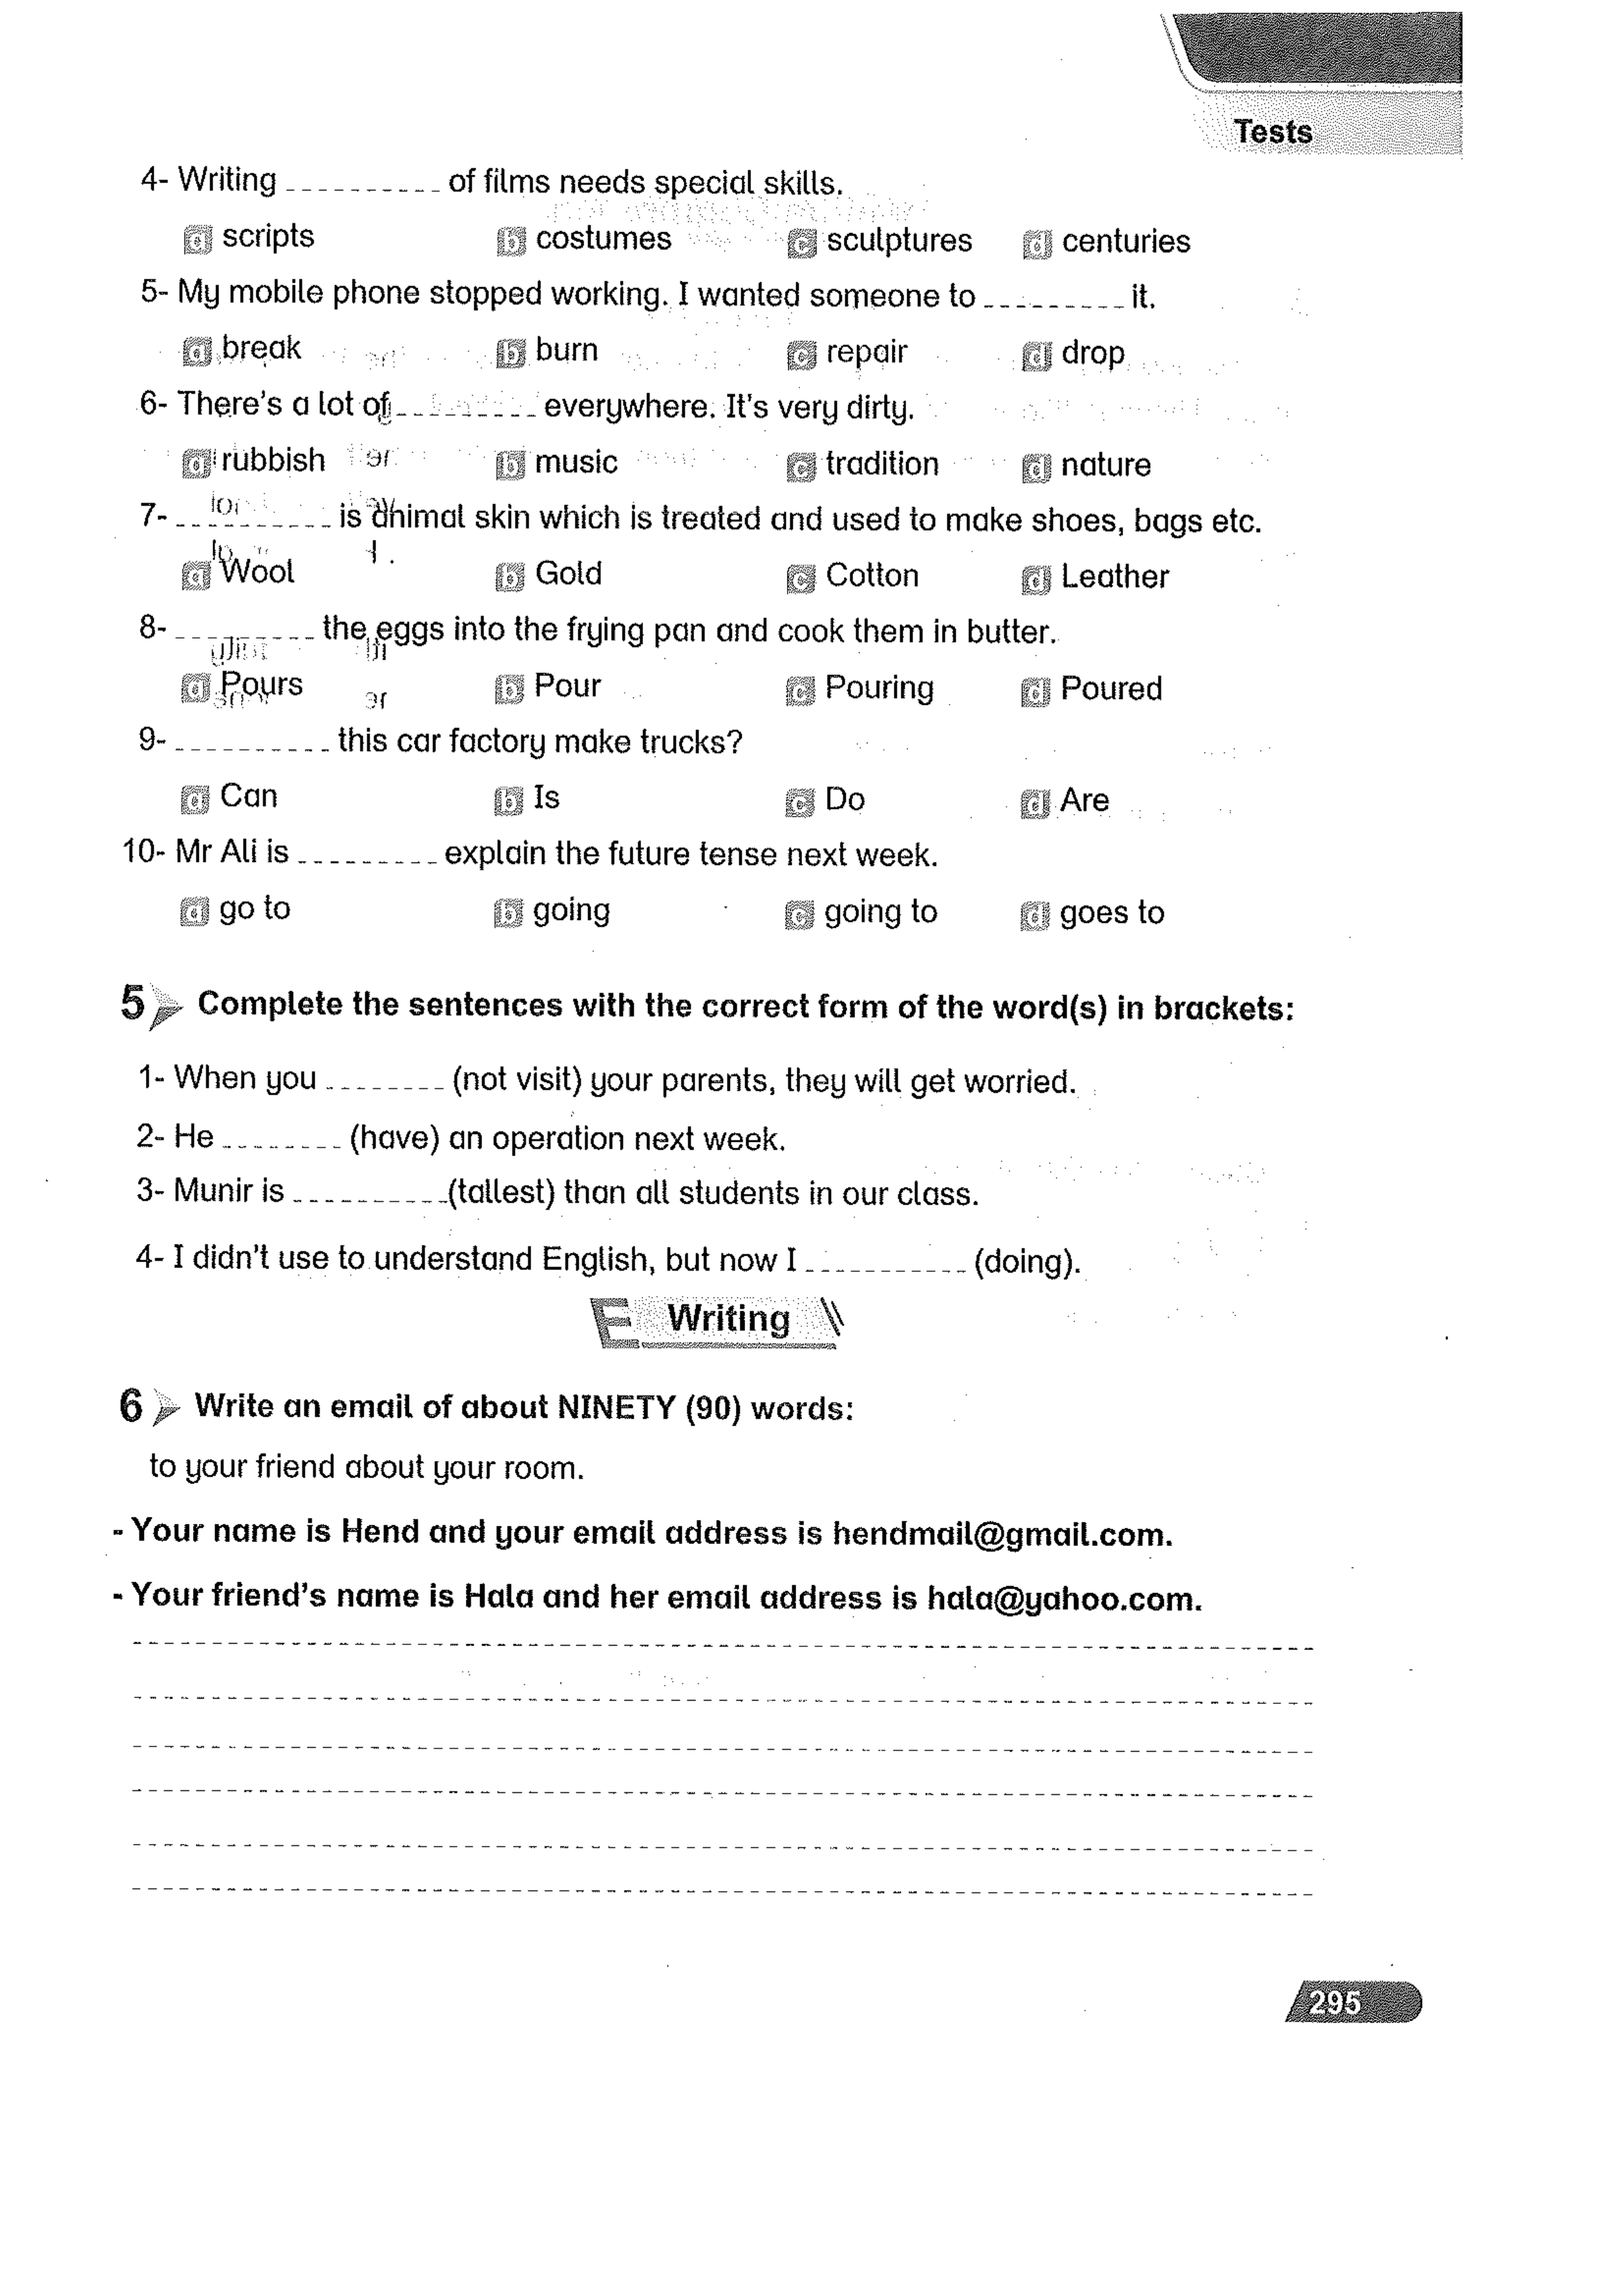 Tests
4- Writing __________ of films needs special skills.
a scripts b costumes c sculptures d centuries
5- My mobile phone stopped working. I wanted someone to _________ it.
a break b burn c repair d drop
6- There's a lot of _________ everywhere. It's very dirty.
a rubbish b music c tradition d nature
7- __________ is animal skin which is treated and used to make shoes, bags etc.
a Wool b Gold c Cotton d Leather
8- _________ the eggs into the frying pan and cook them in butter.
a Pours b Pour c Pouring d Poured
9- __________ this car factory make trucks?
a Can b Is c Do d Are
10- Mr Ali is _________ explain the future tense next week.
a go to b going c going to d goes to
5 Complete the sentences with the correct form of the word(s) in brackets:
1- When you ________ (not visit) your parents, they will get worried.
2- He ________ (have) an operation next week.
3- Munir is __________ (tallest) than all students in our class.
4- I didn't use to understand English, but now I __________ (doing).
E Writing
6 Write an email of about NINETY (90) words:
to your friend about your room.
- Your name is Hend and your email address is hendmail@gmail.com.
- Your friend's name is Hala and her email address is hala@yahoo.com.
295